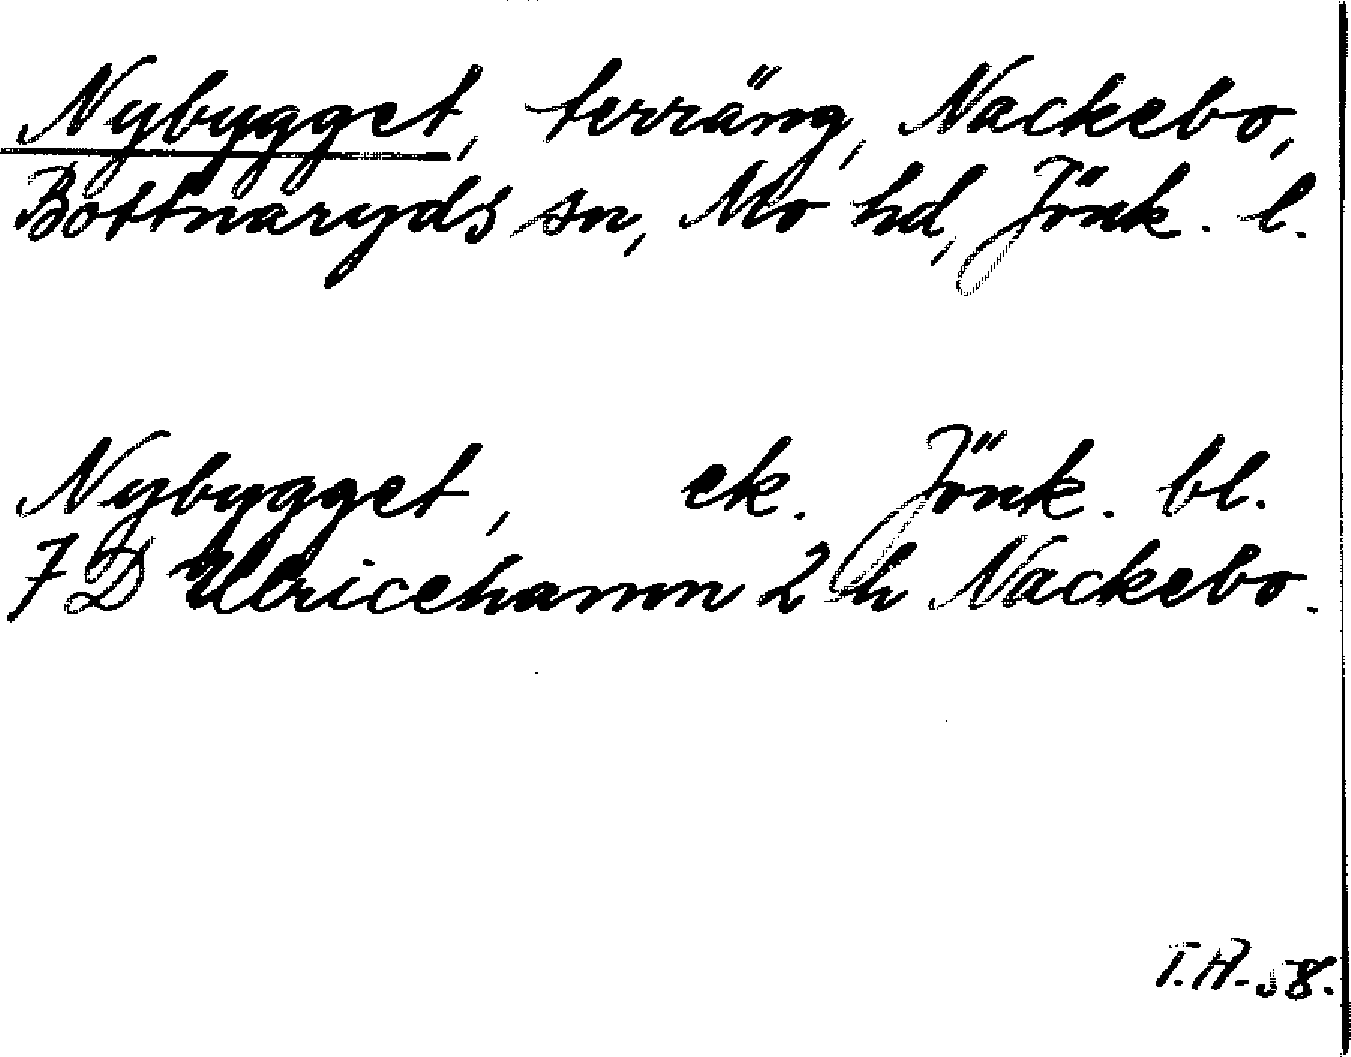 Nybygget, terräng, Nackebo,
Bottnaryds sn, Mo hd, Jönk. l.
Nybygget, ek. Jönk. bl.
7 D Ulricehamn 2 h Nackebo.
T.A-58.